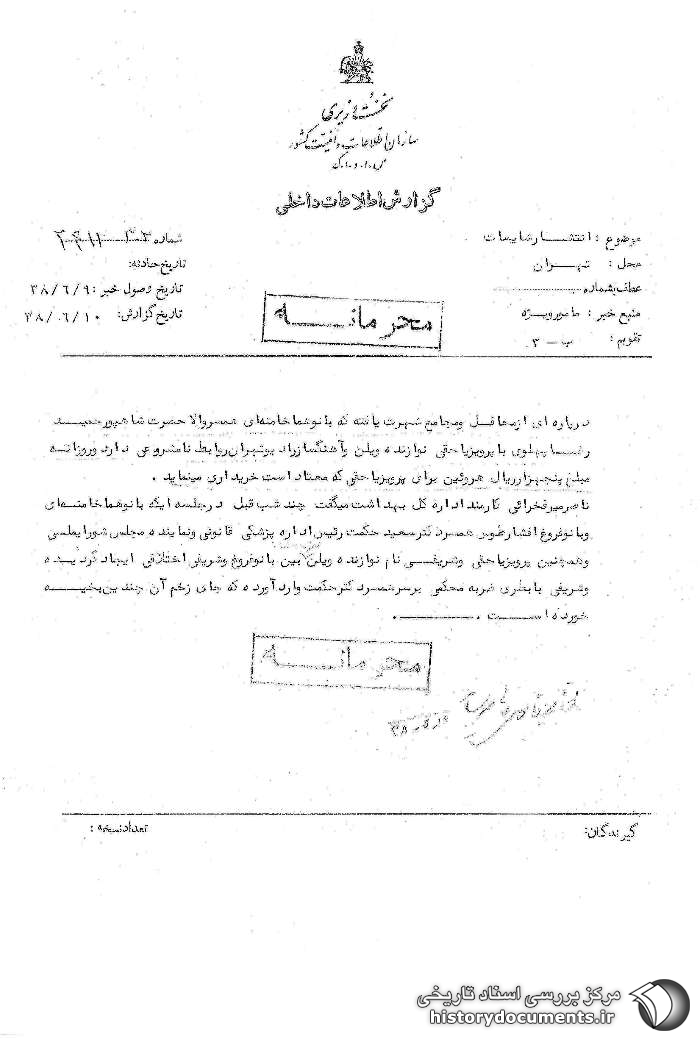 نخست وزیری
سازمان اطلاعات و امنیت کشور
س.ا.و.ا.ک
گزارش اطلاعات داخلی
موضوع : انتشار شایعات
محل : تهران
عطف بشماره
منبع خبر : مامور ویژه
تقویم : ب - ۳
شماره
تاریخ حادثه:
تاریخ وصول خبر : ۳۸/۶/۹
تاریخ گزارش: ۳۸/۶/۱۰
محرمانه
در پاره ای از محافل و مجامع شهرت یافته که بانو هما خامنه‌ای همسر والاحضرت شاهپور حمید
رضا پهلوی با پرویز یاحقی نوازنده ویلن و آهنگساز رادیو تهران روابط نامشروعی دارد و روزانه
مبلغ پنجهزار ریال هروئین برای پرویز یاحقی که معتاد است خریداری مینماید .
ناصر میرفخرائی کارمند اداره کل بهداشت میگفت چند شب قبل در جلسه ایکه بانو هما خامنه‌ای
و بانو فروغ افشار طوس همسر دکتر سعید حکمت رئیس اداره پزشکی قانونی و نماینده مجلس شورایملی
و همچنین پرویز یاحقی و شریفی نام نوازنده ویلن بین بانو فروغ و شریفی اختلافی ایجاد گردیده
و شریفی با بطری ضربه محکمی بر سر همسر دکتر حکمت وارد آورده که جای زخم آن چندین بخیه
خورده است .
محرمانه
گیرندگان:
تعداد نسخه :
مرکز بررسی اسناد تاریخی
historydocuments.ir